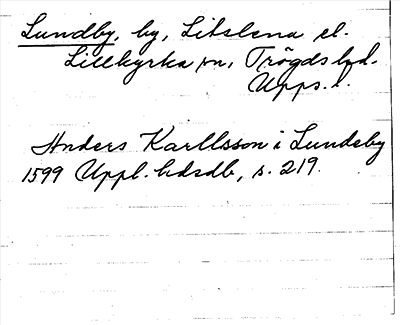 Lundby, by, Litslena el.
Lillkyrka sn, Trögds hd.
Upps. l.
Anders Karllsson i Lundeby
1599 Uppl. hdsdb, s. 219.